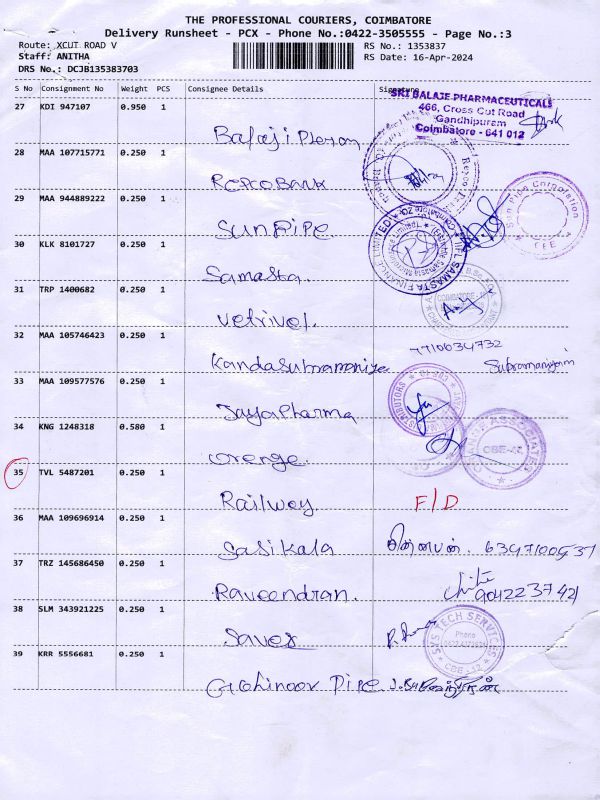 THE PROFESSIONAL COURIERS, COIMBATORE
Delivery Runsheet - PCX - Phone No.:0422-3505555 - Page No.:3
Route: XCUT ROAD V
RS No.: 1353837
Staff: ANITHA
RS Date: 16-Apr-2024
DRS No.: DCJB135383703
S No Consignment No Weight PCS Consignee Details Signature
SRI BALAJE PHARMACEUTICALS
466, Cross Cut Road
Gandhipuram
Coimbatore - 641 012
27 KDI 947107 0.950 1
Balaji
28 MAA 107715771 0.250 1
Repco Bank
29 MAA 944889222 0.250 1
Sun Pipe
Sun Pipe Corporation
CBE
30 KLK 8101727 0.250 1
Samasta
31 TRP 1400682 0.250 1
Vetrivel.
32 MAA 105746423 0.250 1
7710634732
Kandasubramaniya
Subramaniyam
33 MAA 109577576 0.250 1
Jaya Pharma
34 KNG 1248318 0.580 1
orenge
35 TVL 5487201 0.250 1
Railway F/D
36 MAA 109696914 0.250 1
Sasikala
37 TRZ 145686450 0.250 1
Raveendran.
38 SLM 343921225 0.250 1
Saves
SYS TECH SERVICES
Phone
CBE-12
39 KRR 5556681 0.250 1
Gohinoor Pipe